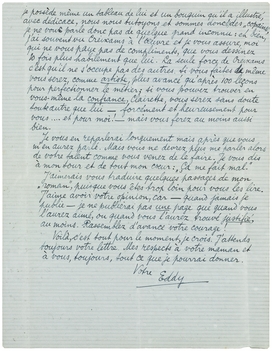 je possède même un tableau de lui et un bouquin qu'il a illustré,
avec dédicace, nous nous tutoyons et sommes
je ne vous parle donc pas de quelque grand inconnu : eh bien,
j'ai souvent vu Creixams à l'œuvre et je vous assure, moi
qui ne vous paye pas de compliments, que vous dessinez
10 fois plus habilement que lui. La seule force de Creixams
c'est qu'il ne s'occupe pas des autres. Si vous faites de même
vous serez, comme artiste, plus avancé qu'après 100 leçons
pour perfectionner le métier ; si vous pouvez trouver en
vous-même la confiance, Carlotta, vous serez sans doute
tout autre que lui — forcément et heureusement pour
vous — et pour moi! — mais vous ferez au moins aussi
bien.
Je vous en reparlerai longuement mais après que vous
m'en aurez parlé. Mais vous ne devrez plus me parler alors
de votre talent comme vous venez de le faire. Je vous dis
à mon tour et de tout mon cœur : Ça me fait mal.
J'aimerais vous traduire quelques passages de mon
roman, puisque vous êtes trop loin pour vous les lire.
J'aime avoir votre opinion, car — quand jamais je
publie — je ne publierai pas une page que quand vous
l'aurez aimé, ou quand vous l'aurez trouvé justifié
au moins. Rassemblez d'avance votre courage!
Voilà, c'est tout pour le moment, je crois. J'attends
toujours votre lettre. Mes respects à votre maman et
à vous, toujours, tout ce que je pourrai donner.
Votre
Eddy